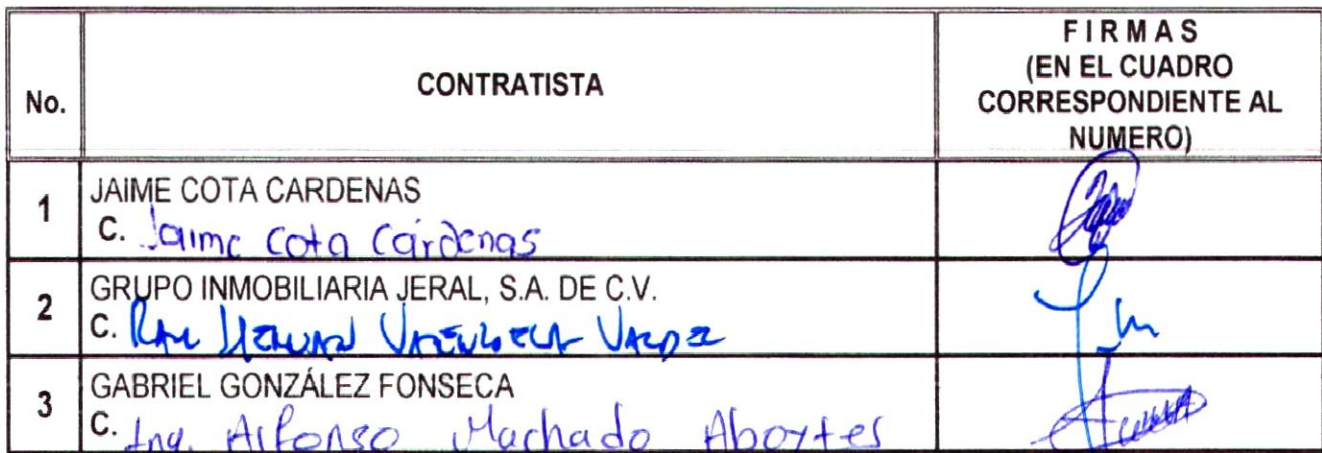 No.
CONTRATISTA
F I R M A S
(EN EL CUADRO
CORRESPONDIENTE AL
NUMERO)
1
JAIME COTA CARDENAS
C. Jaime Cota Cárdenas
2
GRUPO INMOBILIARIA JERAL, S.A. DE C.V.
C.
3
GABRIEL GONZÁLEZ FONSECA
C. Ing. Alfonso Machado Aboytes